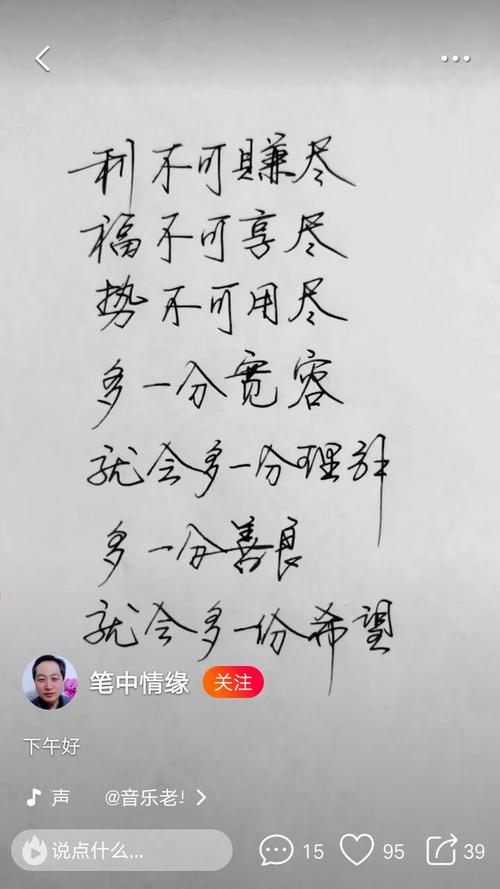 利不可賺尽
福不可享尽
势不可用尽
多一分宽容
就会多一分理解
多一分善良
就会多一份希望
笔中情缘 关注
下午好
声 @音乐老!
说点什么... 15 95 39